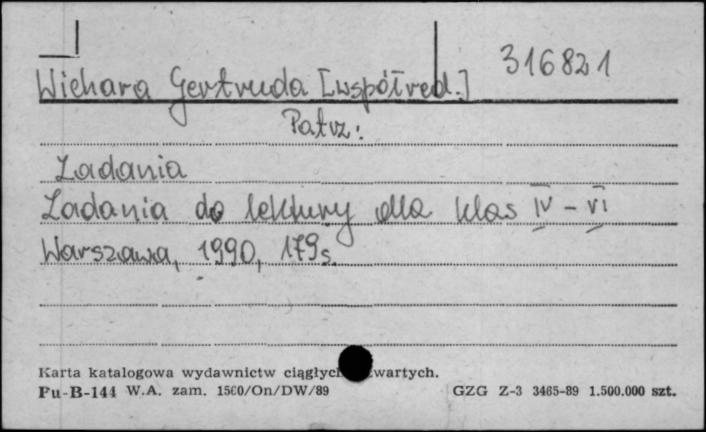 316821
Wichara Gertruda [współred.]
Patrz:
Zadania
Zadania do lektury dla klas IV - VI
Warszawa, 1990, 179 s.
Karta katalogowa wydawnictw ciągłych wartych.
Pu-B-144 W.A. zam. 1560/On/DW/89 GZG Z-3 3465-89 1.500.000 szt.